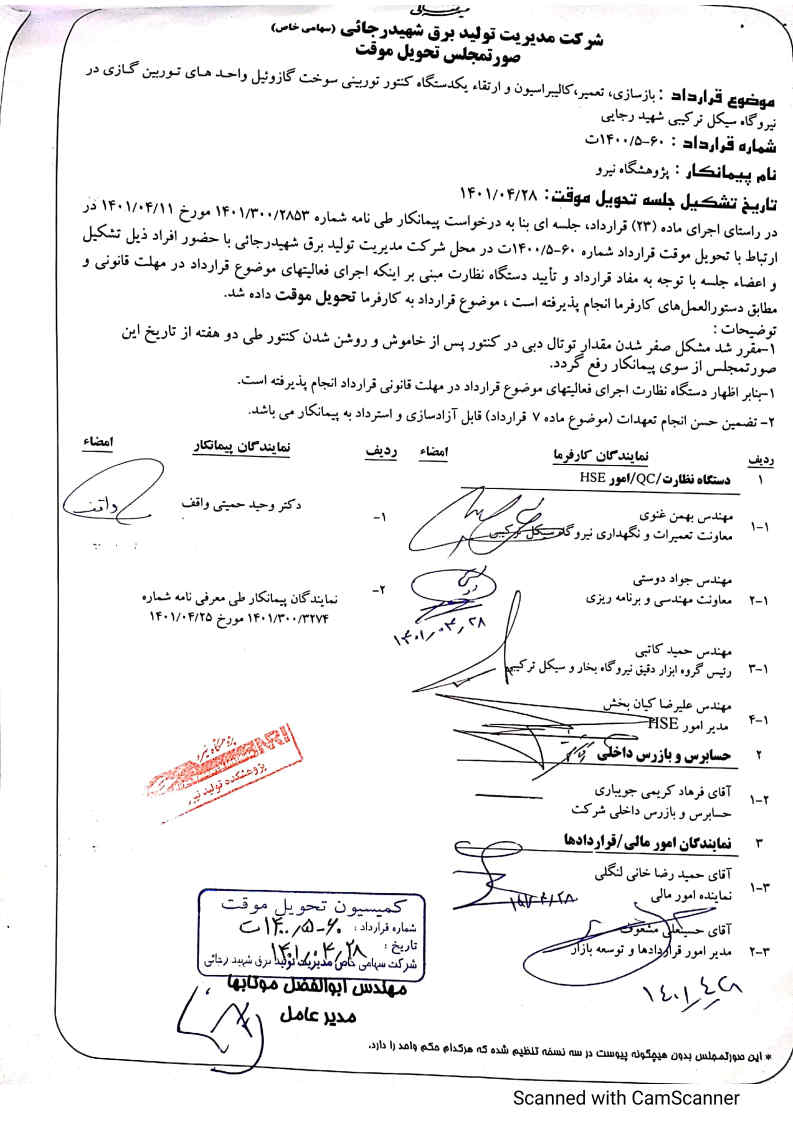 شرکت مدیریت تولید برق شهیدرجائی (سهامی خاص)
صورتمجلس تحویل موقت
موضوع قرارداد : بازسازی، تعمیر،کالیبراسیون و ارتقاء یکدستگاه کنتور توربینی سوخت گازوئیل واحد های توربین گازی در
نیروگاه سیکل ترکیبی شهید رجایی
شماره قرارداد : ۶۰-۱۴۰۰/۵ت
نام پیمانکار : پژوهشگاه نیرو
تاریخ تشکیل جلسه تحویل موقت: ۱۴۰۱/۰۴/۲۸
در راستای اجرای ماده (۲۳) قرارداد، جلسه ای بنا به درخواست پیمانکار طی نامه شماره ۱۴۰۱/۳۰۰/۲۸۵۳ مورخ ۱۴۰۱/۰۴/۱۱ در
ارتباط با تحویل موقت قرارداد شماره ۶۰-۱۴۰۰/۵ت در محل شرکت مدیریت تولید برق شهیدرجائی با حضور افراد ذیل تشکیل
و اعضاء جلسه با توجه به مفاد قرارداد و تأیید دستگاه نظارت مبنی بر اینکه اجرای فعالیتهای موضوع قرارداد در مهلت قانونی و
مطابق دستورالعمل‌های کارفرما انجام پذیرفته است ، موضوع قرارداد به کارفرما تحویل موقت داده شد.
توضیحات :
۱-مقرر شد مشکل صفر شدن مقدار توتال دبی در کنتور پس از خاموش و روشن شدن کنتور طی دو هفته از تاریخ این
صورتمجلس از سوی پیمانکار رفع گردد.
۱-بنابر اظهار دستگاه نظارت اجرای فعالیتهای موضوع قرارداد در مهلت قانونی قرارداد انجام پذیرفته است.
۲- تضمین حسن انجام تعهدات (موضوع ماده ۷ قرارداد) قابل آزادسازی و استرداد به پیمانکار می باشد.
ردیف نمایندگان کارفرما امضاء ردیف نمایندگان پیمانکار امضاء
۱ دستگاه نظارت/QC/امور HSE
۱-۱ مهندس بهمن غنوی
معاونت تعمیرات و نگهداری نیروگاه سیکل ترکیبی
۱- دکتر وحید حمیتی واقف
واقف
۲-۱ مهندس جواد دوستی
معاونت مهندسی و برنامه ریزی
۱۴۰۱/۰۴/۲۸
۲- نمایندگان پیمانکار طی معرفی نامه شماره
۱۴۰۱/۳۰۰/۳۲۷۴ مورخ ۱۴۰۱/۰۴/۲۵
۳-۱ مهندس حمید کاتبی
رئیس گروه ابزار دقیق نیروگاه بخار و سیکل ترکیبی
۴-۱ مهندس علیرضا کیان بخش
مدیر امور HSE
پژوهشگاه نیرو
پژوهشکده تولید نیرو
۲ حسابرس و بازرس داخلی
۱-۲ آقای فرهاد کریمی جویباری
حسابرس و بازرس داخلی شرکت
۳ نمایندگان امور مالی/قراردادها
۱-۳ آقای حمید رضا خانی لنگلی
نماینده امور مالی
۱۴۰۱/۰۴/۲۸
۲-۳ آقای حسینعلی
مدیر امور قراردادها و توسعه بازار
۱۴۰۱/۴/۲۸
کمیسیون تحویل موقت
شماره قرارداد : ۶۰-۱۴۰۰/۵ت
تاریخ : ۱۴۰۱/۰۴/۲۸
شرکت سهامی خاص مدیریت تولید برق شهید رجائی
مهندس ابوالفضل موتابها
مدیر عامل
* این صورتمجلس بدون هیچگونه پیوست در سه نسخه تنظیم شده که هرکدام حکم واحد را دارد.
Scanned with CamScanner